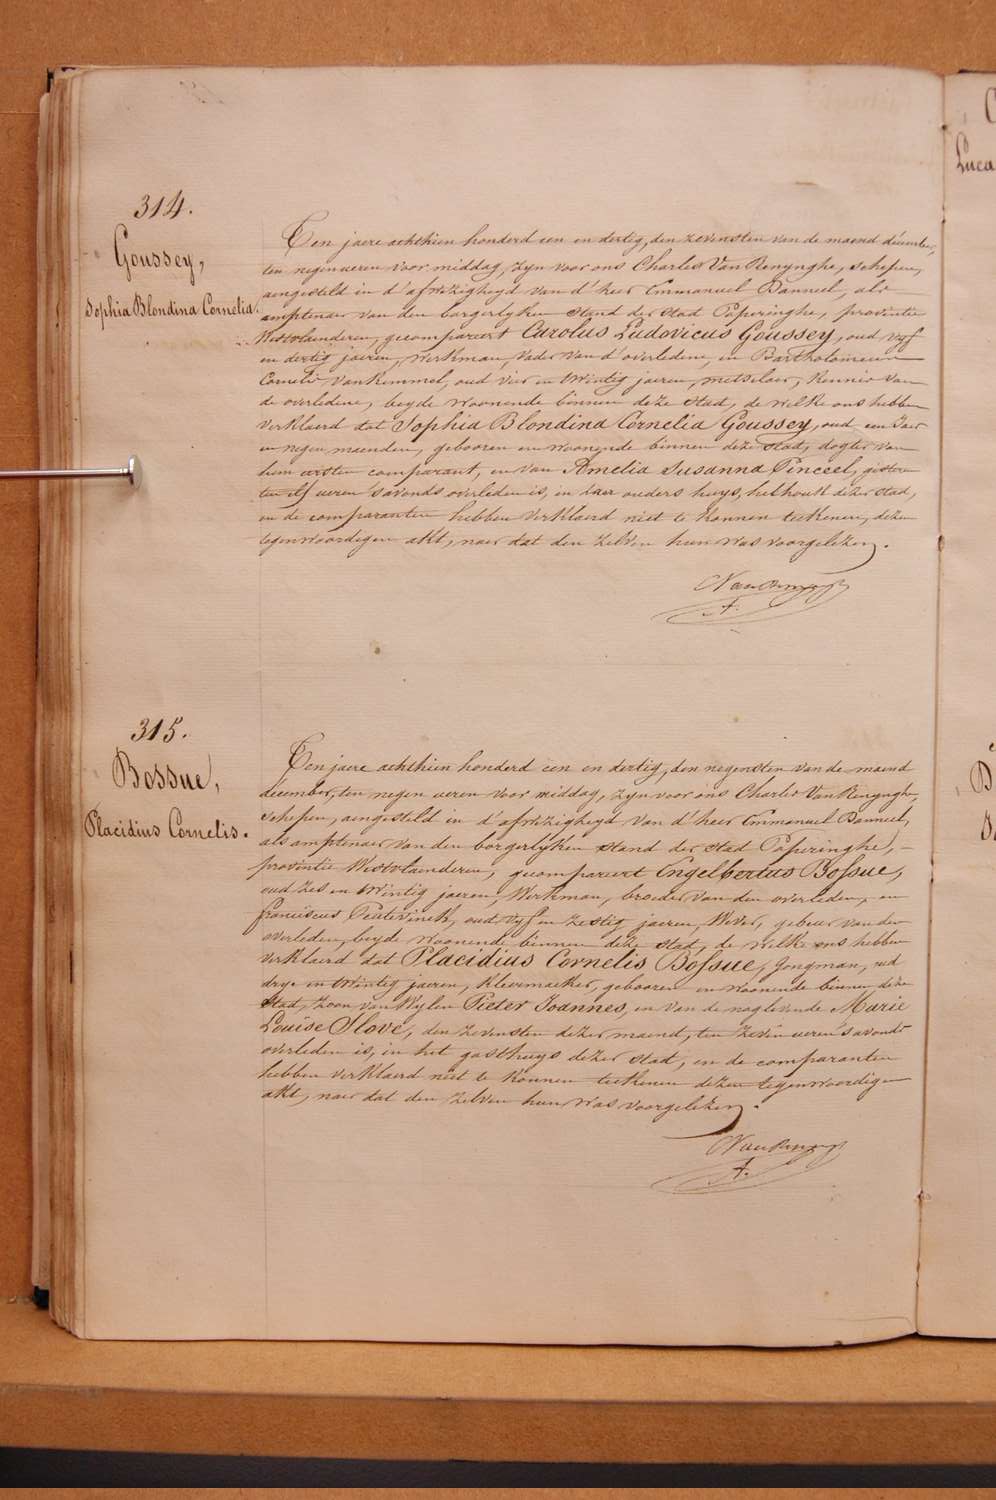 314.
Goussey,
Sophia Blondina Cornelia.
Ten jaere achthien honderd een en dertig, den zevensten van de maend december,
ten negen ueren voor middag, zyn voor ons Charles Van Renynghe, schepen,
aengesteld in d'afwezigheyd van d'heer Emmanuel Banneel, als
amptenaer van den borgerlyken stand der stad Poperinghe, provintie
Westvlaenderen, gecompareert Carolus Ludovicus Goussey, oud vyf
en dertig jaeren, werkman, vader van d'overledene, en Bartholomeus
Cornelis Van Kemmel, oud vier en twintig jaeren, metselaer, kennis van
de overledene, beyde woonende binnen deze stad, de welke ons hebben
verklaerd dat Sophia Blondina Cornelia Goussey, oud een Jaer
en negen maenden, gebooren en woonende binnen deze stad, dogter van
hem eersten comparant, en van Amelia Susanna Pinceel, gister
ten elf ueren s'avonds overleden is, in haer ouders huys, helhoutt dezer stad,
en de comparanten hebben verklaerd niet te konnen teekenen, dezen
tegenwoordigen akt, naer dat den zelven hun was voorgelezen.
315.
Bossue,
Placidius Cornelis.
Ten jaere achthien honderd een en dertig, den negensten van de maend
december, ten negen ueren voor middag, zyn voor ons Charles Van Renynghe,
schepen, aengesteld in d'afwezigheyd van d'heer Emmanuel Banneel,
als amptenaer van den borgerlyken stand der stad Poperinghe,
provintie Westvlaenderen, gecompareert Engelbertus Bossue,
oud zes en twintig jaeren, Werkman, broeder van den overleden, en
franciscus oud vyf en zestig jaeren, Wever, gebeur van den
overleden, beyde woonende binnen deze stad, de welke ons hebben
verklaerd dat Placidius Cornelis Bossue, Jongman, oud
drye en twintig jaeren, kleermaeker, gebooren en woonende binnen deze
stad, zoon van Wylen Pieter Joannes, en van de naglevende Marie
Louise Slove, den zevensten dezer maend, ten zeven ueren s'avonds
overleden is, in het gasthuys dezer stad, en de comparanten
hebben verklaerd niet te konnen teekenen dezen tegenwoordigen
akt, naer dat den zelven hun was voorgelezen.
Luca